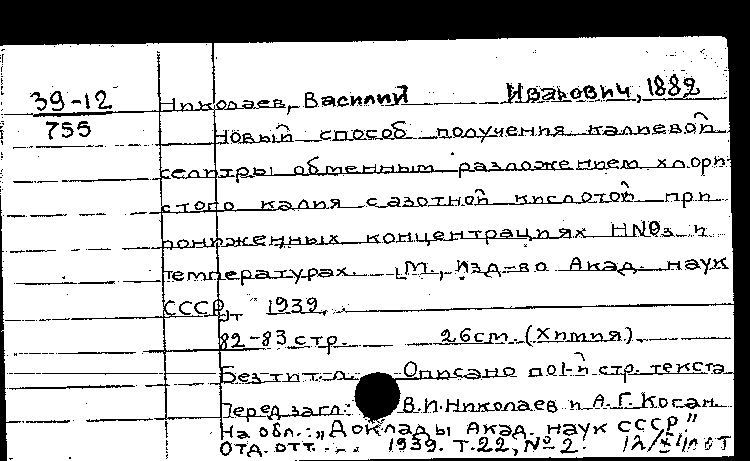 39-12
755
Николаев, Василий Иванович, 1882
Новый способ получения калиевой
селитры обменным разложением хлори-
стого калия с азотной кислотой при
пониженных концентрациях HNO3 и
температурах. [М., Изд-во Акад. наук
СССР, 1939.
82-83 стр. 26 см. (Химия).
Без тит. л. Описано по 1-й стр. текста
Перед загл: В.И. Николаев и А.Г. Коган.
На обл.: „Доклады Акад. наук СССР"
Отд. отт. 1939. Т.22, № 2.